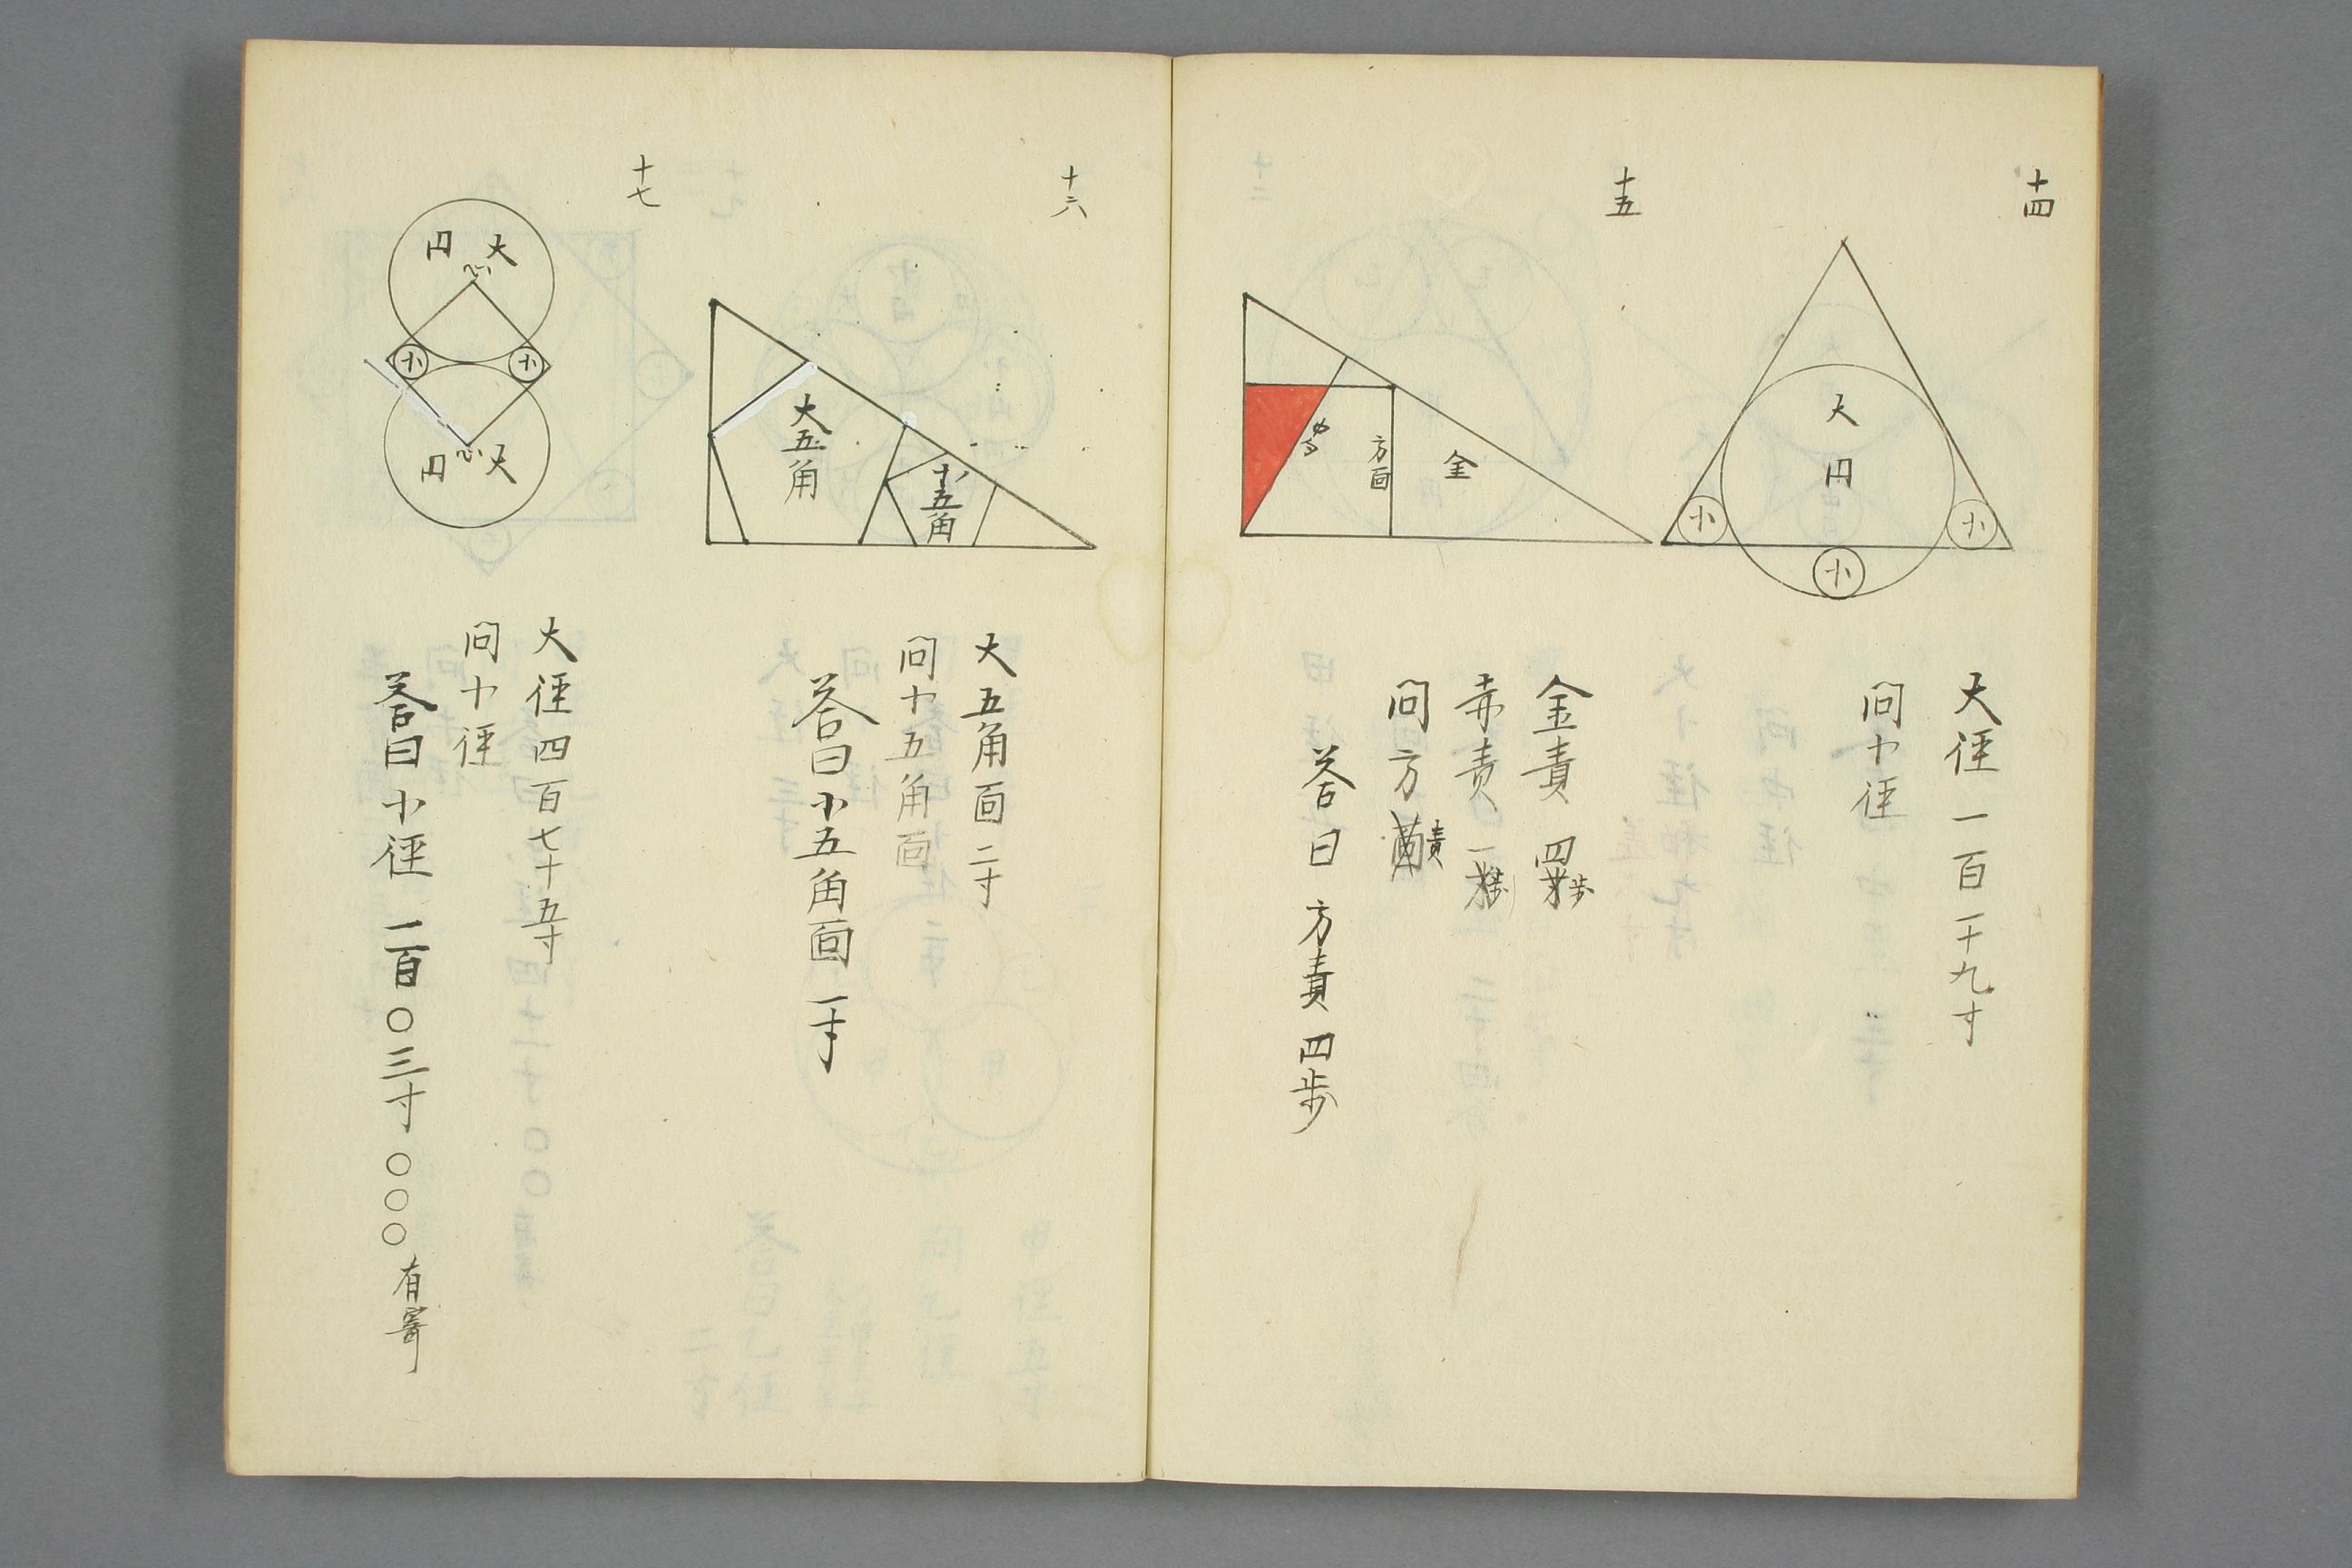 十四
大
円
小
小
小
大径一百二十九寸
問小径
十五
金
方面
中勾
金責四歩
赤責一歩
問方責
答曰方責四歩
十六
大五角
小五角
大五角面二寸
問小五角面
答曰小五角面一寸
十七
大円
心
小
小
心
大円
大径四百七十五寸
問小径
答曰小径一百〇三寸〇〇〇有寄